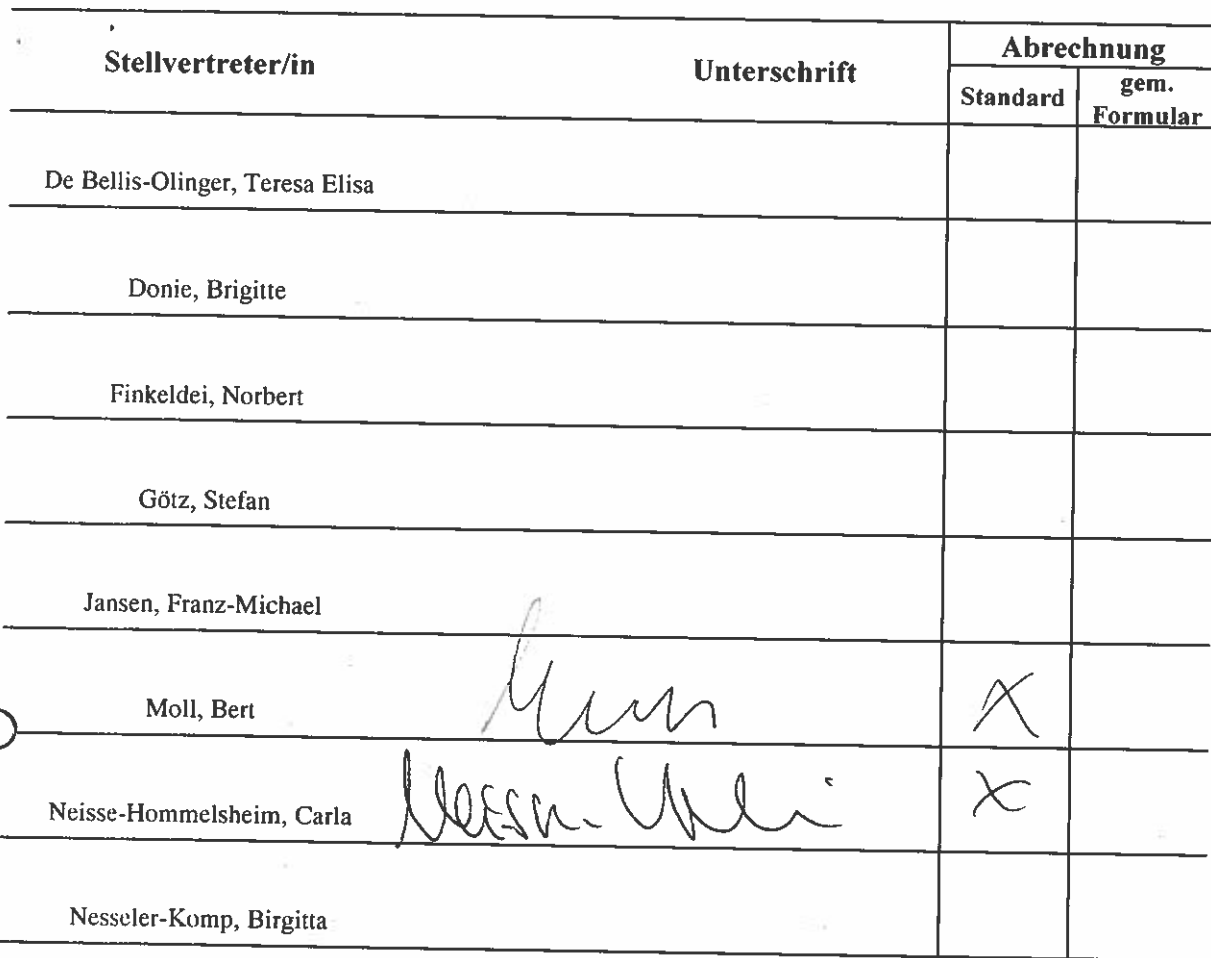 Stellvertreter/in Unterschrift Abrechnung
Standard gem. Formular
De Bellis-Olinger, Teresa Elisa
Donie, Brigitte
Finkeldei, Norbert
Götz, Stefan
Jansen, Franz-Michael
Moll, Bert X
Neisse-Hommelsheim, Carla X
Nesseler-Komp, Birgitta